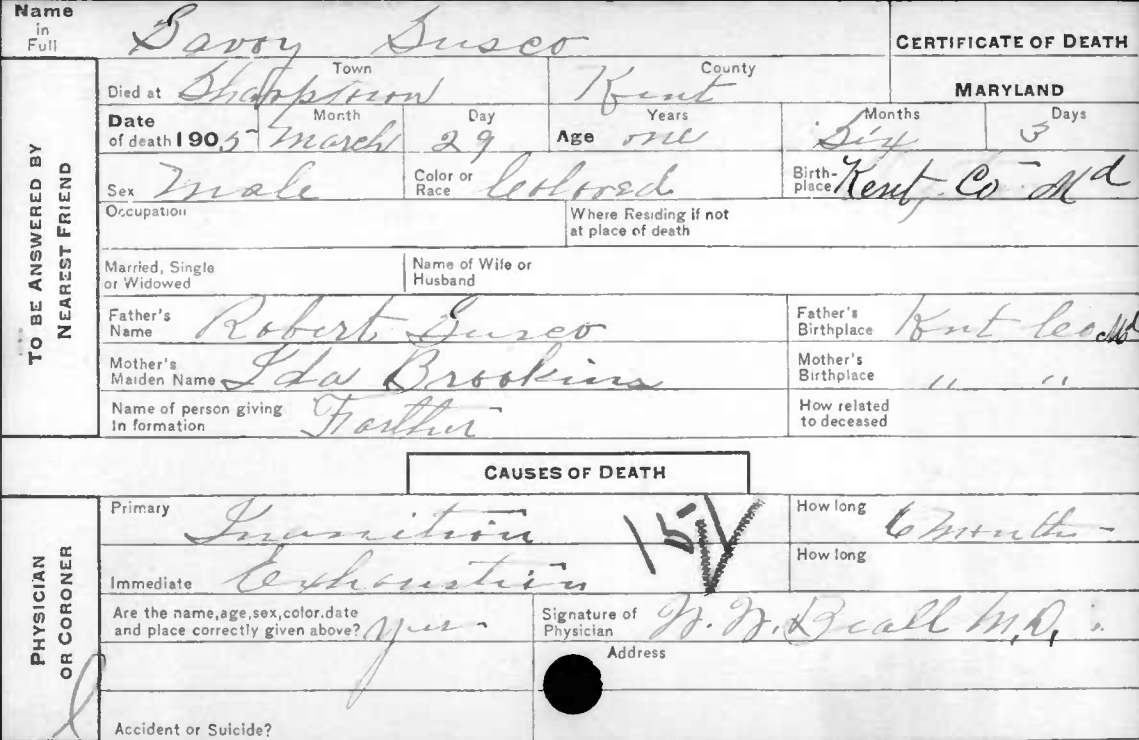 Name in Full Savoy Susco
CERTIFICATE OF DEATH
Died at Sharptown Town Kent County
MARYLAND
Date of death 1905 Month March Day 29 Age Years one Months Six Days 3
Sex Male Color or Race Colored Birthplace Kent, Co Md
Occupation Where Residing if not at place of death
Married, Single or Widowed Name of Wife or Husband
Father's Name Robert Susco Father's Birthplace Knt Co Md
Mother's Maiden Name Ida Brookins Mother's Birthplace " "
Name of person giving In formation Farther How related to deceased
TO BE ANSWERED BY NEAREST FRIEND
CAUSES OF DEATH
Primary Inanition How long 6 months
151
Immediate Exhaustion How long
Are the name, age, sex, color. date and place correctly given above? yes Signature of Physician W. W. Beall M.D.
Address
Accident or Suicide?
PHYSICIAN OR CORONER